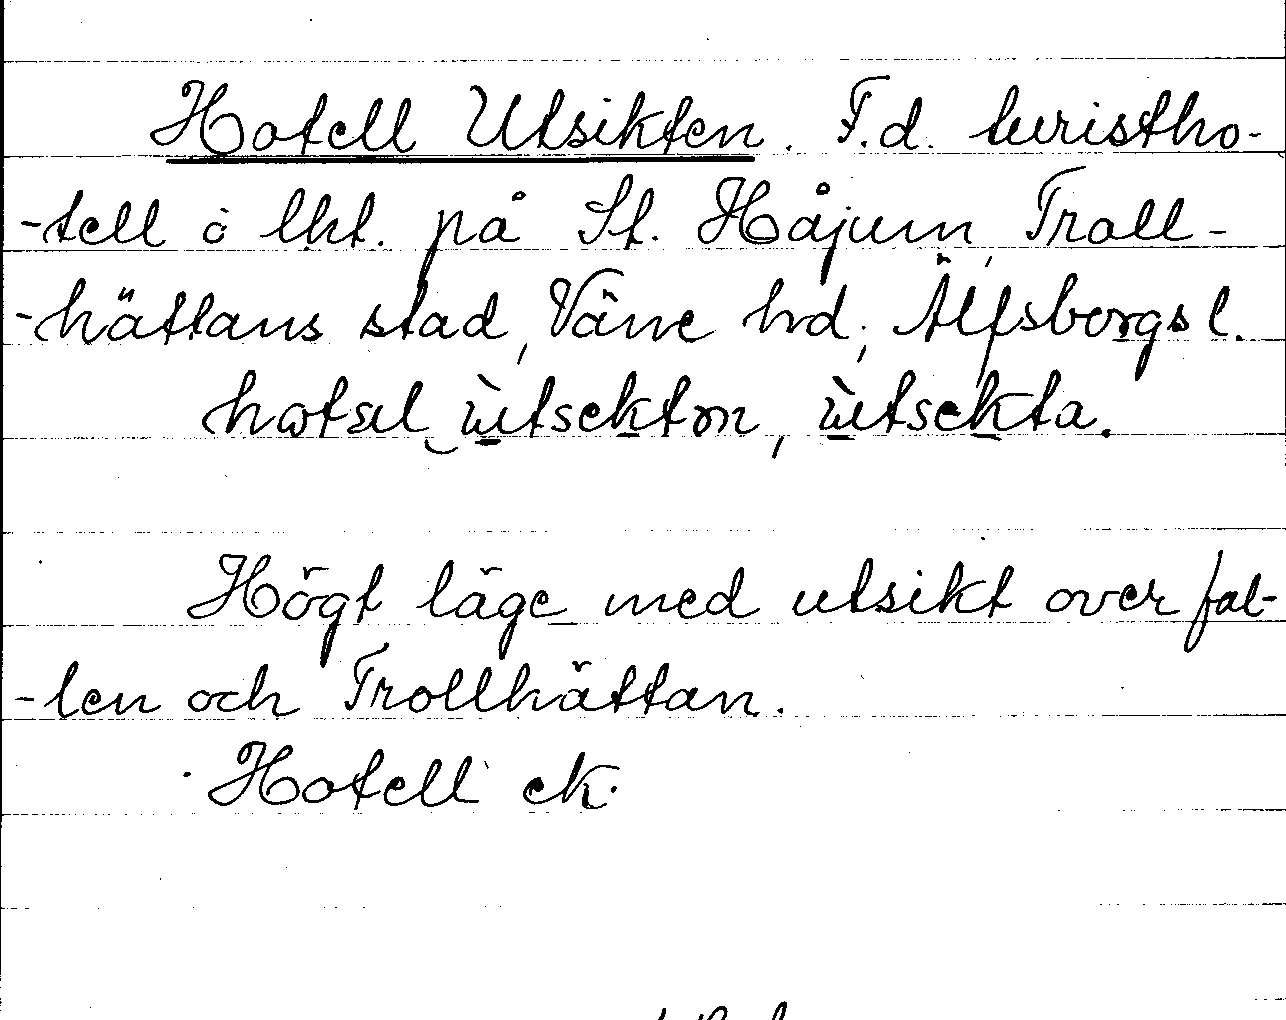 Hotell Utsikten. F.d. turistho-
-tell i lht. på St. Håjum, Troll-
-hättans stad, Väne hd, Älfsborgs l.
hotäl ùtsektɷn, ùtsekta.
Högt läge med utsikt över fal-
-len och Trollhättan.
Hotell ek.